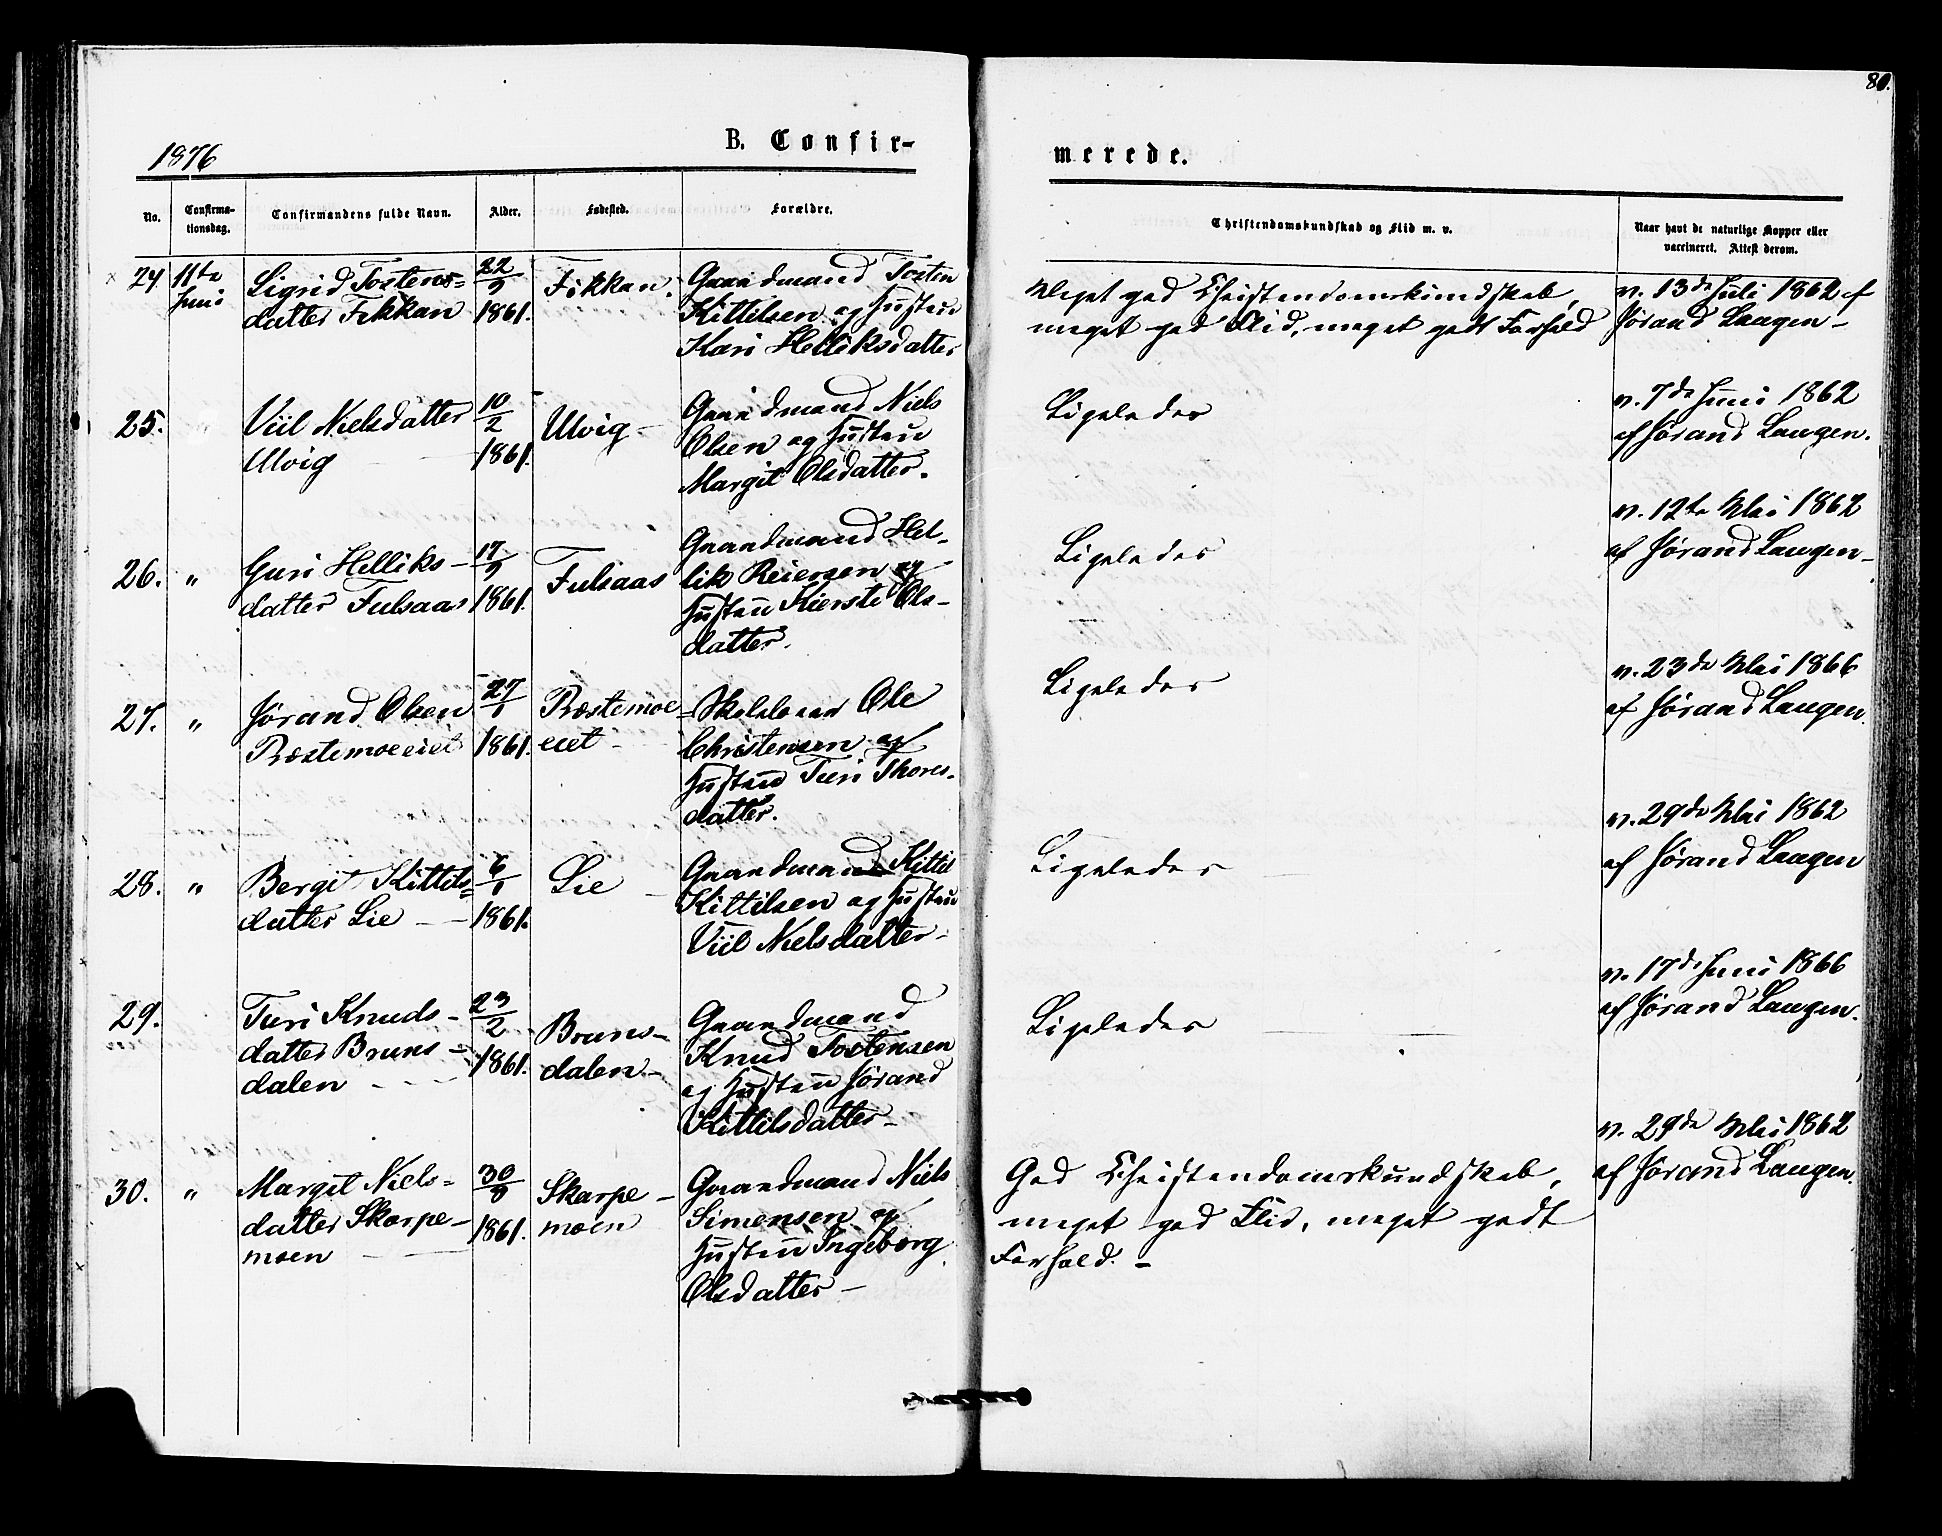 80.
1876
B. Confir-
merede.
No.
Confirma-
tionsdag.
Confirmandens fulde Navn.
Alder.
Fødested.
Forældre.
Christendomskundskab og Flid m. v.
Naar havt de naturlige Kopper eller
vaccineret. Attest derom.
24 11te
Juni
Sigrid Tostens=
datter Fekkan
22/9
1861.
Fekkan.
Gaardmand Tosten
Kittilsen og Hustru
Kari Helliksdatter
Meget god Christendomskundskab,
meget god Flid, meget godt Forhold
v. 13de Juli 1862 af
Jørand Laagen -
25.
Viil Nielsdatter
Ulvig
10/2
1861.
Ulvig -
Gaardmand Niels
Olsen og Hustru
Margit Olsdatter.
Ligeledes
v. 7de Juni 1862
af Jørand Laagen.
26. "
Guri Helliks-
datter Fulsaas
17/9
1861.
Fulsaas
Gaardmand Hel-
lik Reiersen og
Hustru Kiersti Ols-
datter.
Ligeledes
v. 12te Mai 1862
af Jørand Laagen -
27. "
Jørand Olsen
Præstemoeeiet
27/1
1861.
Præstemoe
eiet -
Skolelærer Ole
Christensen og
Hustru Turi Thores-
datter.
Ligeledes
v. 23de Mai 1866
af Jørand Laagen.
28. "
Bergit Kittils=
datter Lie -
6/1
1861.
Lie -
Gaardmand Kittil
Kittilsen og Hustru
Viil Nielsdatter -
Ligeledes
v. 29de Mai 1862
af Jørand Laagen
29.
Turi Knuds-
datter Bruns-
dalen -
23/2
1861.
Bruns-
dalen -
Gaardmand
Knud Tostensen
og Hustru Jørand
Kittilsdatter -
Ligeledes
v. 17de Juni 1866
af Jørand Laagen.
30. "
Margit Niels-
datter Skarpe-
moen -
30/9
1861.
Skarpe-
moen
Gaardmand Niels
Simensen og
Hustru Ingeborg
Olsdatter -
God Christendomskundskab,
meget god Flid, meget godt
Forhold. -
v. 29de Mai 1862
af Jørand Laagen.